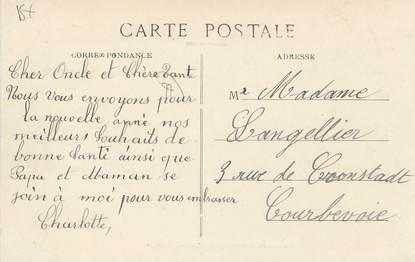 CARTE POSTALE
CORRESPONDANCE
Cher Oncle et Chère Tante
Nous vous envoyons pour
la nouvelle anné nos
meilleurs Souhaits de
bonne Santé ainsi que
Papa et Maman se
join à moi pour vous embrasser
Charlotte,
ADRESSE
Mr Madame
Langellier
3 rue de Cronstadt
Courbevoie